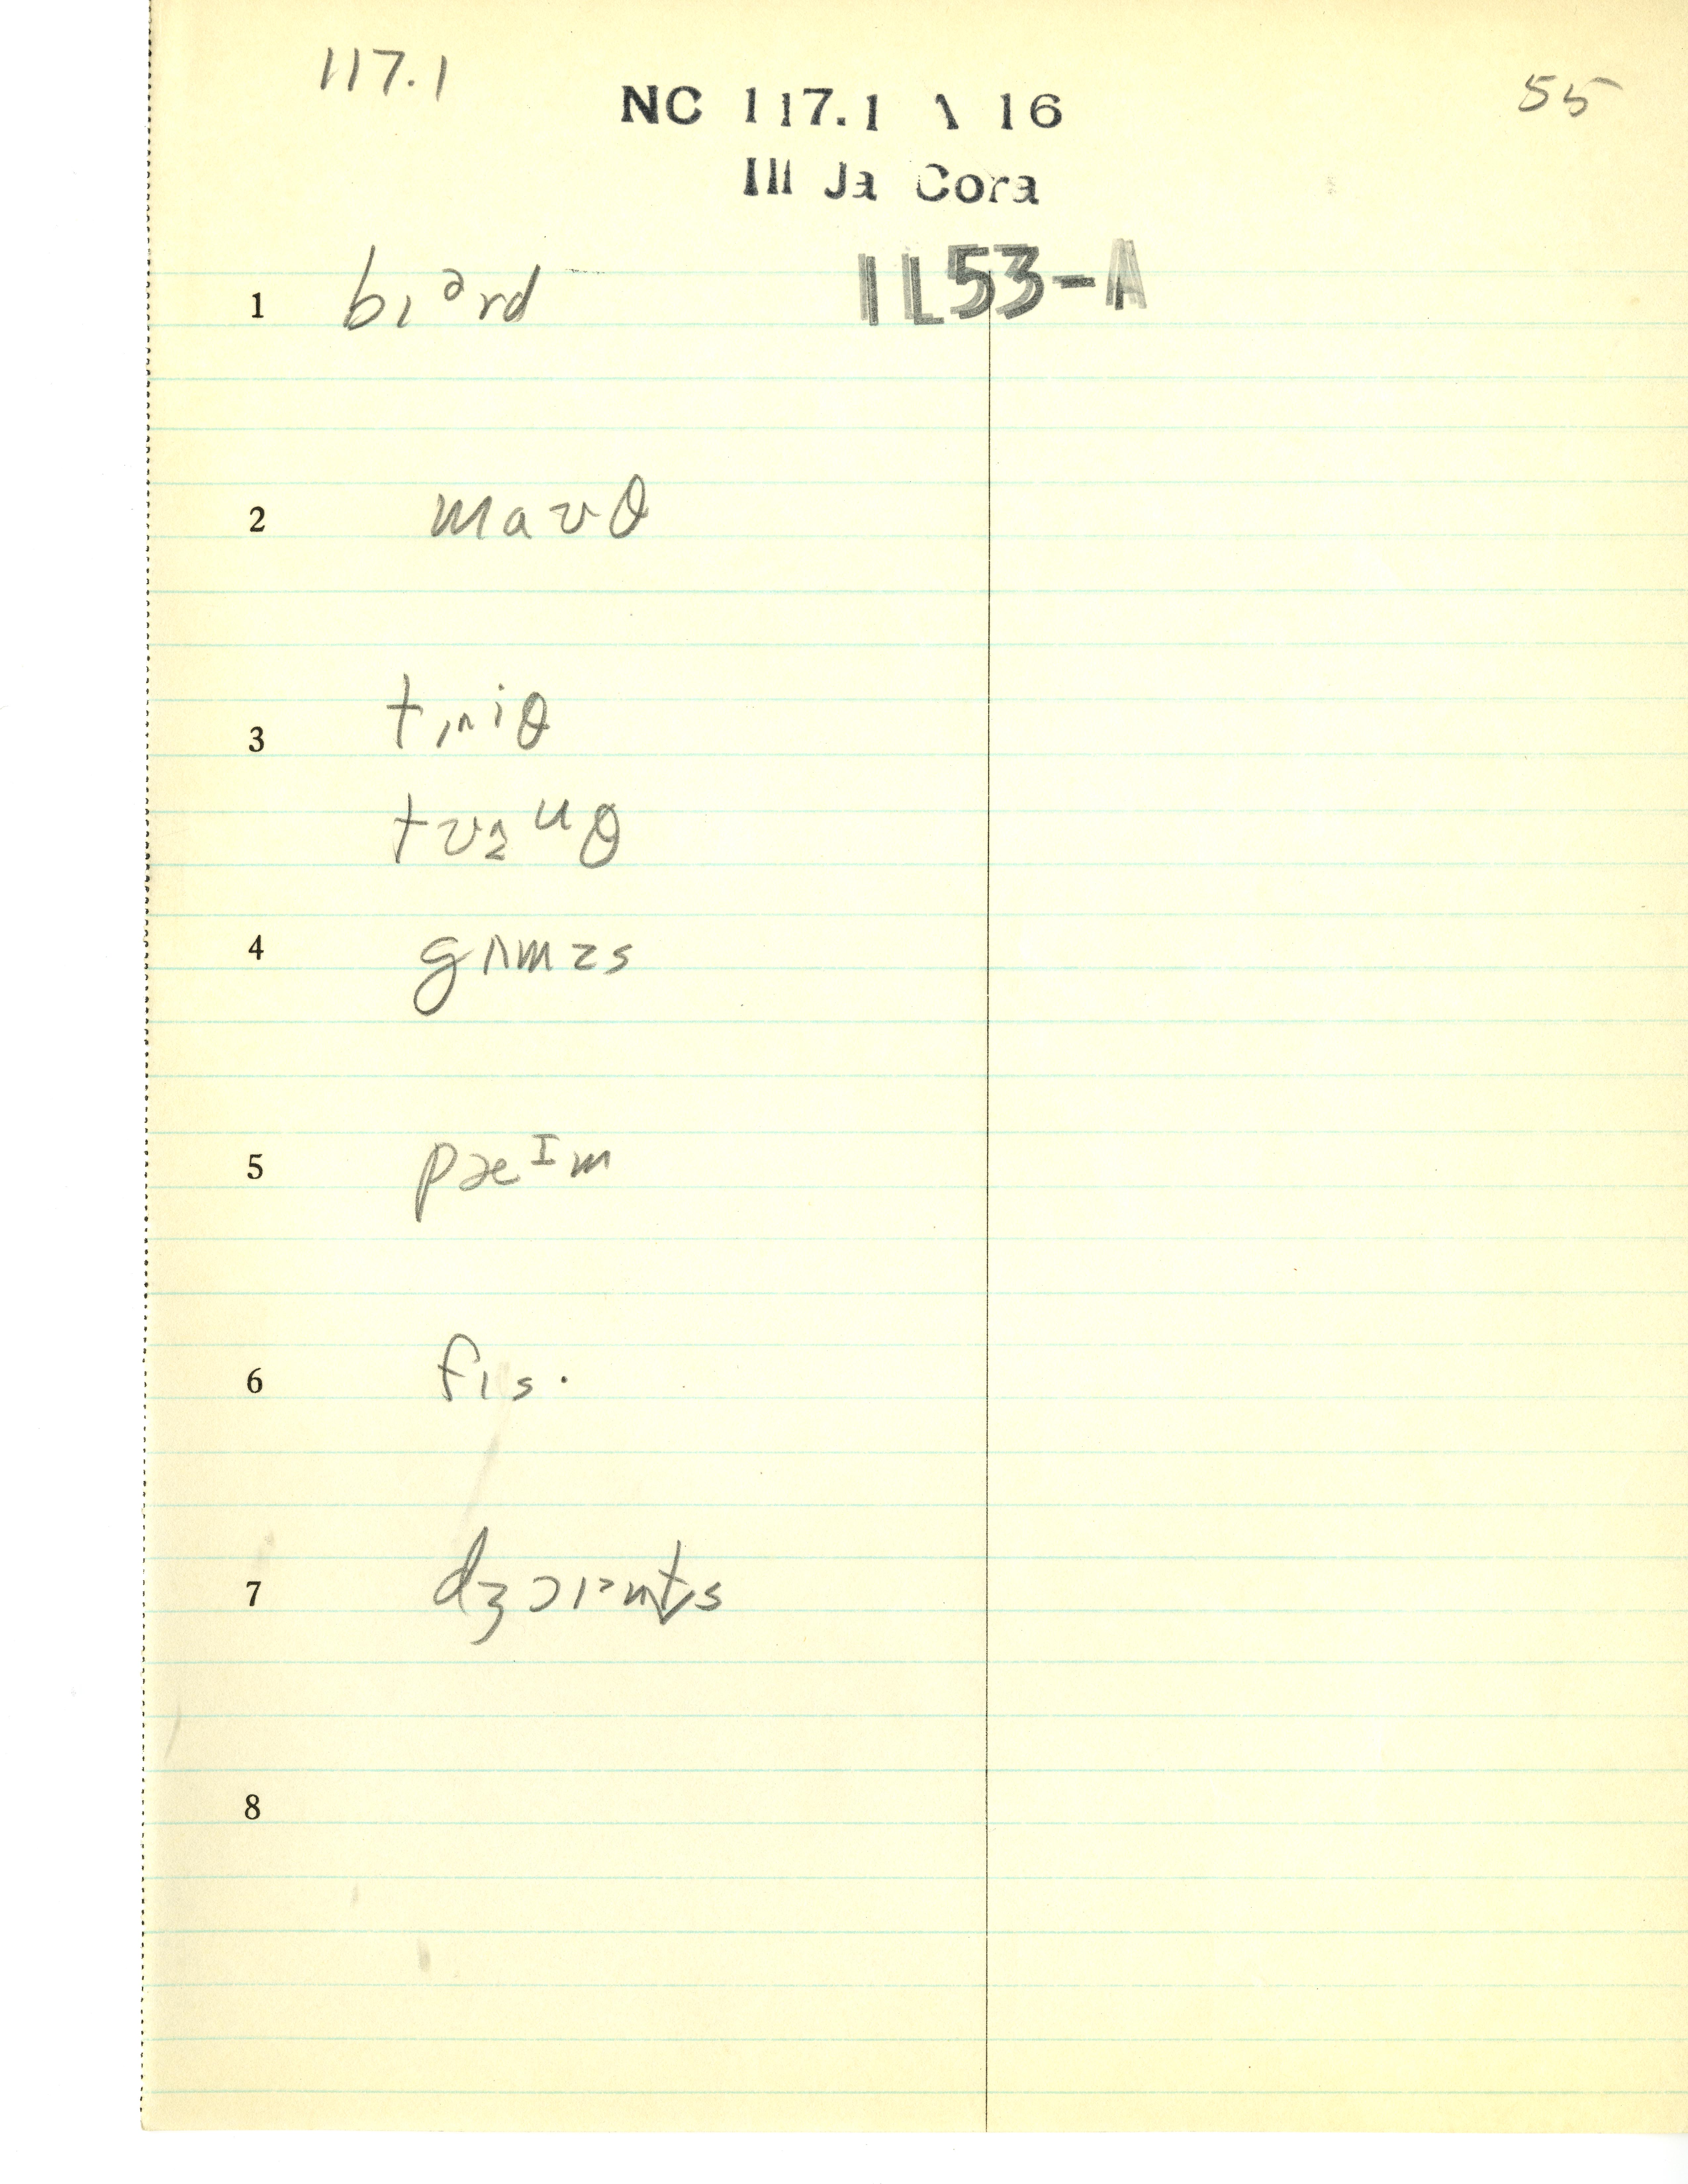 117.1
NC 117.1 \ 16
55
III Ja Cora
1 bɪᵊrd 1L53-A
2 maʊθ
3 tɪnⁱθ
tʊᵘθ
4 gʌmzs
5 pæᴵm
6 fɪs·
7 dʒɔɪᵊnts
8